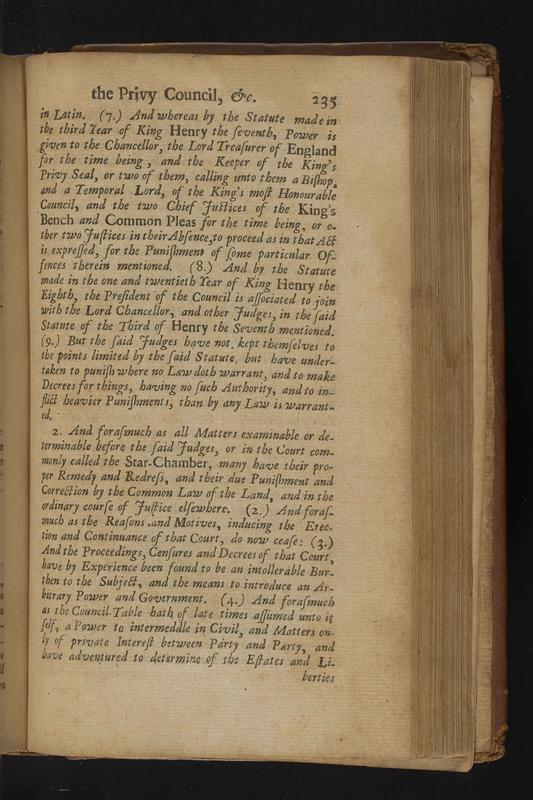 the Privy Council, &c. 235
in Latin. (7.) And whereas by the Statute made in
the third Year of King Henry the ſeventh, Power is
given to the Chancellor, the Lord Treaſurer of England
for the time being, and the Keeper of the King's
Privy Seal, or two of them, calling unto them a Biſhop,
and a Temporal Lord, of the King's moſt Honourable
Council, and the two Chief Juſtices of the King's
Bench and Common Pleas for the time being, or o-
ther two Juſtices in their Abſence, to proceed as in that Act
is expreſſed, for the Puniſhment of ſome particular Of-
fences therein mentioned. (8.) And by the Statute
made in the one and twentieth Year of King Henry the
Eighth, the Preſident of the Council is aſſociated to join
with the Lord Chancellor, and other Judges, in the ſaid
Statute of the Third of Henry the Seventh mentioned.
(9.) But the ſaid Judges have not kept themſelves to
the points limited by the ſaid Statute, but have under-
taken to puniſh where no Law doth warrant, and to make
Decrees for things, having no ſuch Authority, and to in-
flict heavier Puniſhments, than by any Law is warrant-
ed.
2. And foraſmuch as all Matters examinable or de-
terminable before the ſaid Judges, or in the Court com-
monly called the Star-Chamber, many have their pro-
per Remedy and Redreſs, and their due Puniſhment and
Correction by the Common Law of the Land, and in the
ordinary courſe of Juſtice elſewhere. (2.) And foraſ-
much as the Reaſons and Motives, inducing the Erec-
tion and Continuance of that Court, do now ceaſe: (3.)
And the Proceedings, Cenſures and Decrees of that Court,
have by Experience been found to be an intollerable Bur-
then to the Subject, and the means to introduce an Ar-
bitrary Power and Government. (4.) And foraſmuch
as the Council-Table hath of late times aſſumed unto it
ſelf, a Power to intermeddle in Civil, and Matters on-
ly of private Intereſt between Party and Party, and
have adventured to determine of the Eſtates and Li-
berties